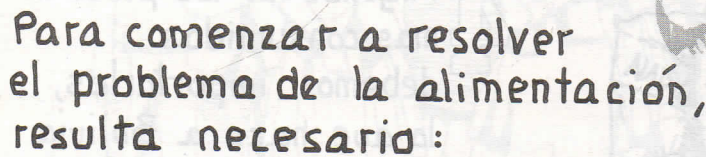 Para comenzar a resolver
el problema de la alimentación,
resulta necesario: